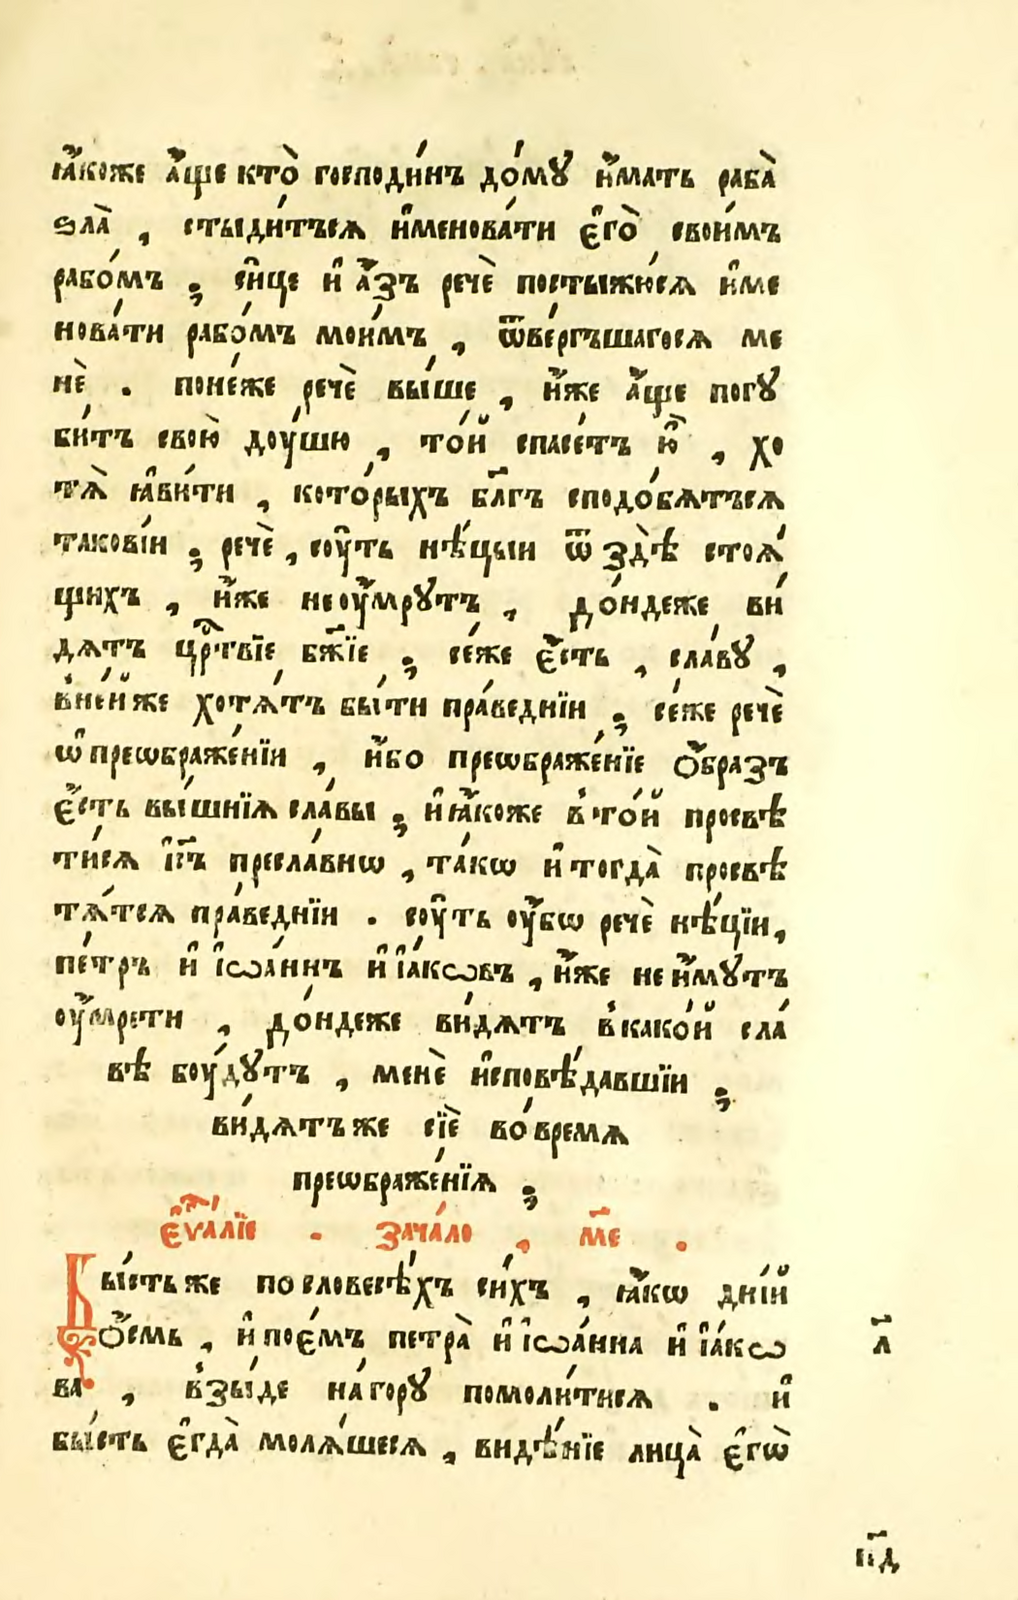 ꙗ҆́коже а҆́ще кто̀ господи́нъ до́мꙋ и҆́мать раба̀
ѕла̀ , стыди́тъсѧ и҆менова́ти є҆го̀ свои́мъ
рабо́мъ ; си́це и҆ а҆́зъ речѐ постыжю́сѧ и҆ме
нова́ти рабо́мъ мои́мъ , ѿве́ргъшагосѧ ме
нѐ . поне́же речѐ вы́ше , и҆́же а҆́ще погꙋ
би́тъ свою̀ доу́шю , то́й спасе́тъ ю҆̀ , хо
тѧ̀ ꙗ҆ви́ти , кото́рыхъ бл҃гъ сподо́бѧтъсѧ
такові́и ; речѐ , соу҆́ть нѣ́цыи ѿ здѣ̀ стоѧ́
щихъ , и҆́же неоу҆́мрꙋтъ , до́ндеже ви́
дѧтъ црⷭ҇твїе бж҃їе ; се́же є҆́сть , сла́вꙋ ,
вне́йже хотѧ́тъ бы́ти пра́веднїи ; се́же речѐ
ѡ҆преѡбраже́нїи , и҆́бо преѡбраже́нїе ѻ҆́бразъ
є҆́сть вы́шнїѧ сла́вы ; и҆ꙗ҆́коже в то́й просвѣ
ти́сѧ і҆с҃ъ пресла́внѡ , та́кѡ и҆ тогда̀ просвѣ
тѧ́тсѧ пра́веднїи . соу҆́ть оу҆́бѡ речѐ нѣ́цїи ,
пе́тръ и҆ і҆ѡа́ннъ и҆ і҆а́кѡвъ , и҆́же не и҆́мꙋтъ
оу҆́мрети , до́ндеже ви́дѧтъ в како́й сла́
вѣ боу́дꙋтъ , менѐ и҆сповѣ́давшїи ;
ви́дѧтъже сїѐ во́время
преѡбраже́нїѧ ;
є҆ѵⷢ҇а́лїе . зача́ло , м҃е .
Бы́стьже по словесѣ́хъ си́хъ , ꙗ҆́кѡ дні́й
ѻ҆́смь , и҆ пое́мъ петра̀ и҆ і҆ѡа́нна и҆ і҆а́кѡ
л҃
ва , взы́де на́горꙋ помоли́тисѧ . и҆
бы́сть є҆гда̀ молѧ́шесѧ , видѣ́нїе лица̀ є҆гѡ̀
п҃д